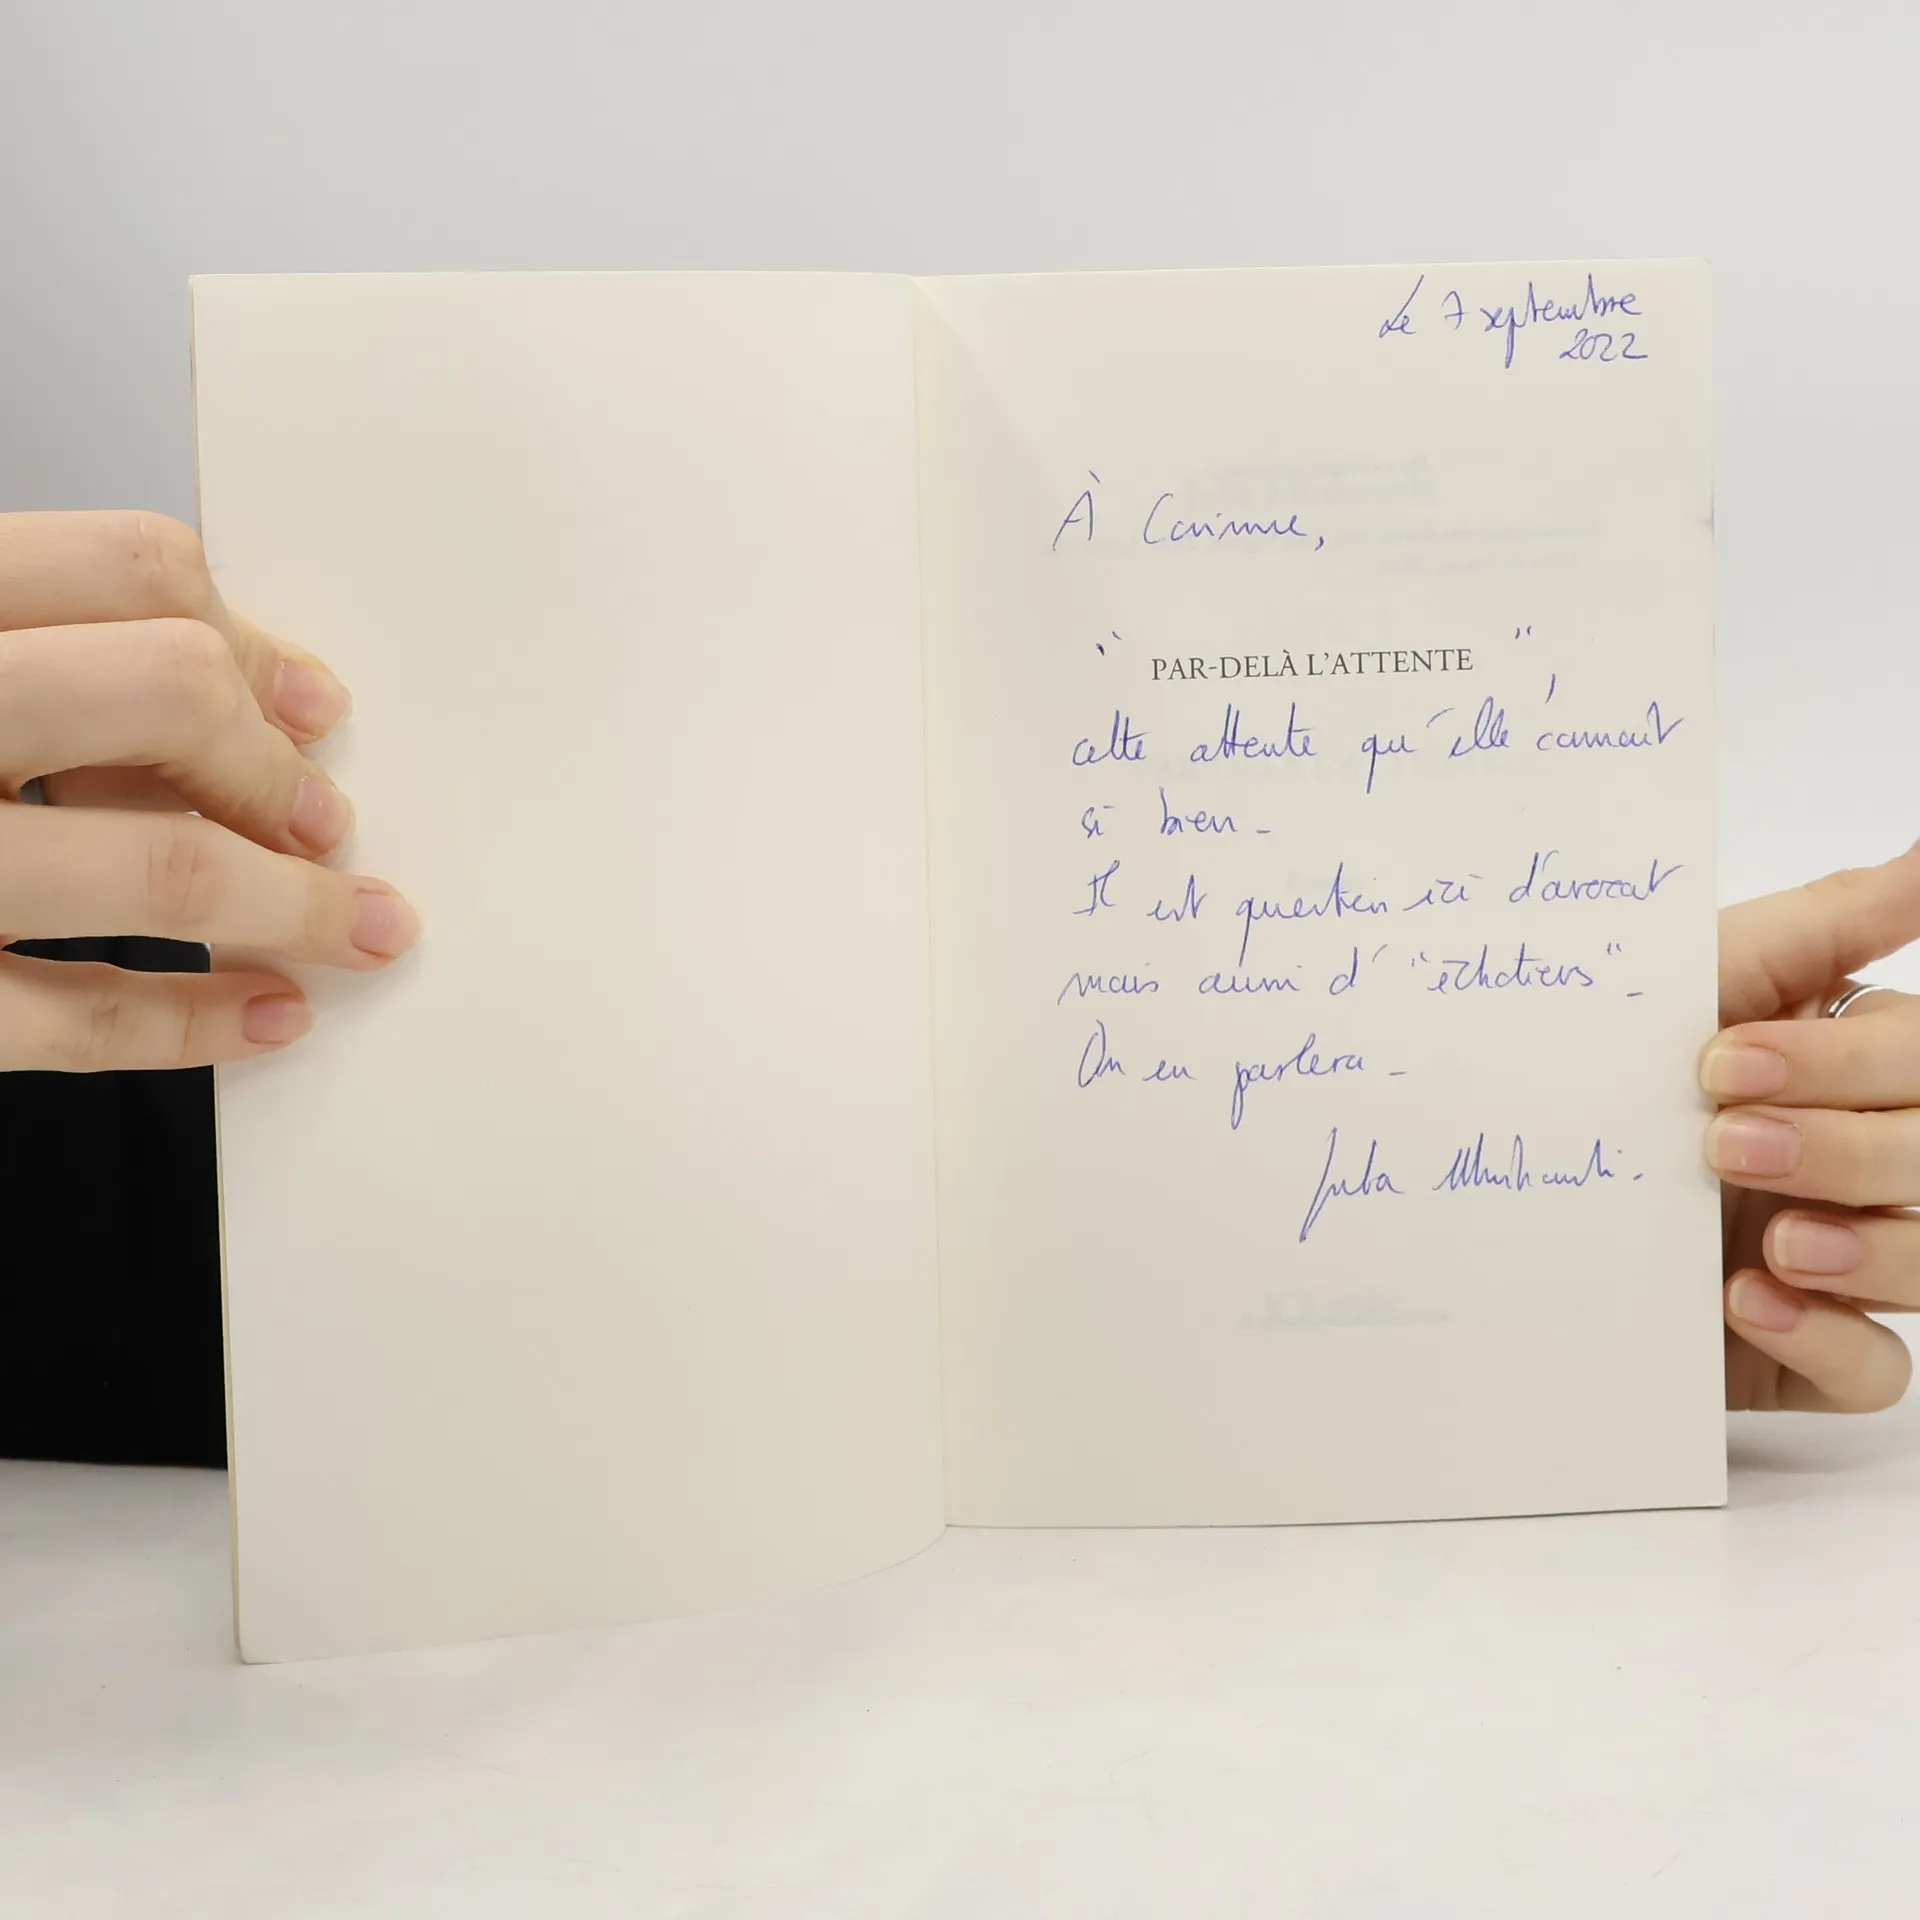 Le 7 septembre
2022
À Corinne,
" PAR-DELÀ L'ATTENTE ",
cette attente qu'elle connaît
si bien -
Il est question ici d'avocat
mais aussi d' "échotiers" -
On en parlera -
Julia Minkowski -